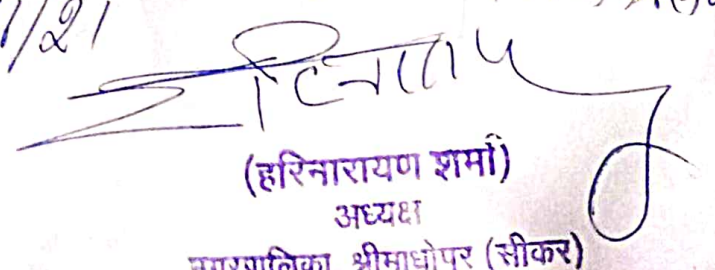 /21
हरिनारायण
(हरिनारायण शर्मा)
अध्यक्ष
नगरपालिका श्रीमाधोपुर (सीकर)